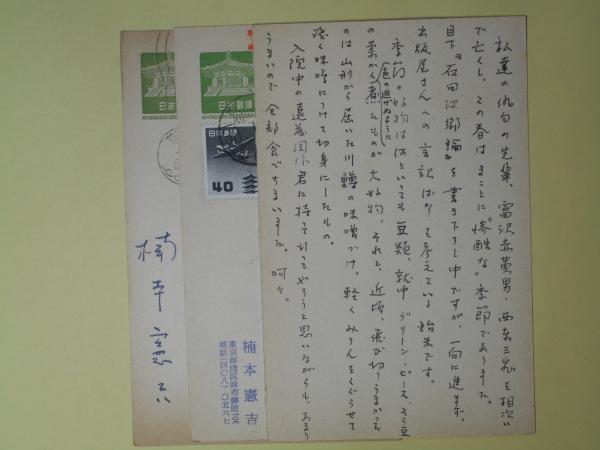 私達の俳句の先輩、富沢赤黄男・西東三鬼を相次い
で亡くし、この春はまことに“惨酷な”季節でありました。
目下『石田波郷論』を書き下し中ですが、一向に進まず、
出版屋さんへの言訳ばかり考えている始末です。
季節の好物は何といっても豆類、就中グリーン・ピース、そら豆
の葉がく煮たものが大好物。それと、近頃、飛び切りうまかった
(色の逃げぬように
のは山形から届いた川鱒の味噌づけ。軽くみりんをくぐらせて
淡く味噌につけて切身にしたもの。
入院中の遠藤周作君に持って行ってやろうと思いながらも、あまり
うまいので全部食べちまいました。呵々。
日本郵便
日本郵便
日本郵便
40
楠本憲吉
東京都港区麻布
電話(四〇八)〇五六七
楠本憲吉